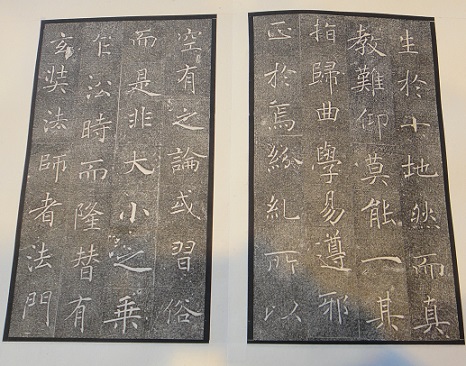 生於十地然而真
教難仰莫能一其
指歸曲學易遵邪
正於焉紛糺所以
空有之論或習俗
而是非大小之乗
乍沿時而隆替有
玄奘法師者法門